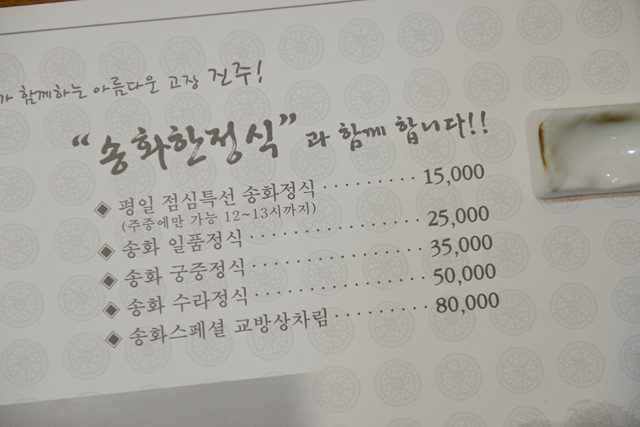 가 함께하는 아름다운 고장 진주!
“송화한정식”과 함께 합니다!!
◈ 평일 점심특선 송화정식 ········ 15,000
(주중에만 가능 12~13시까지)
◈ 송화 일품정식 ················ 25,000
◈ 송화 궁중정식 ················ 35,000
◈ 송화 수라정식 ················ 50,000
◈ 송화스페셜 교방상차림 ········· 80,000